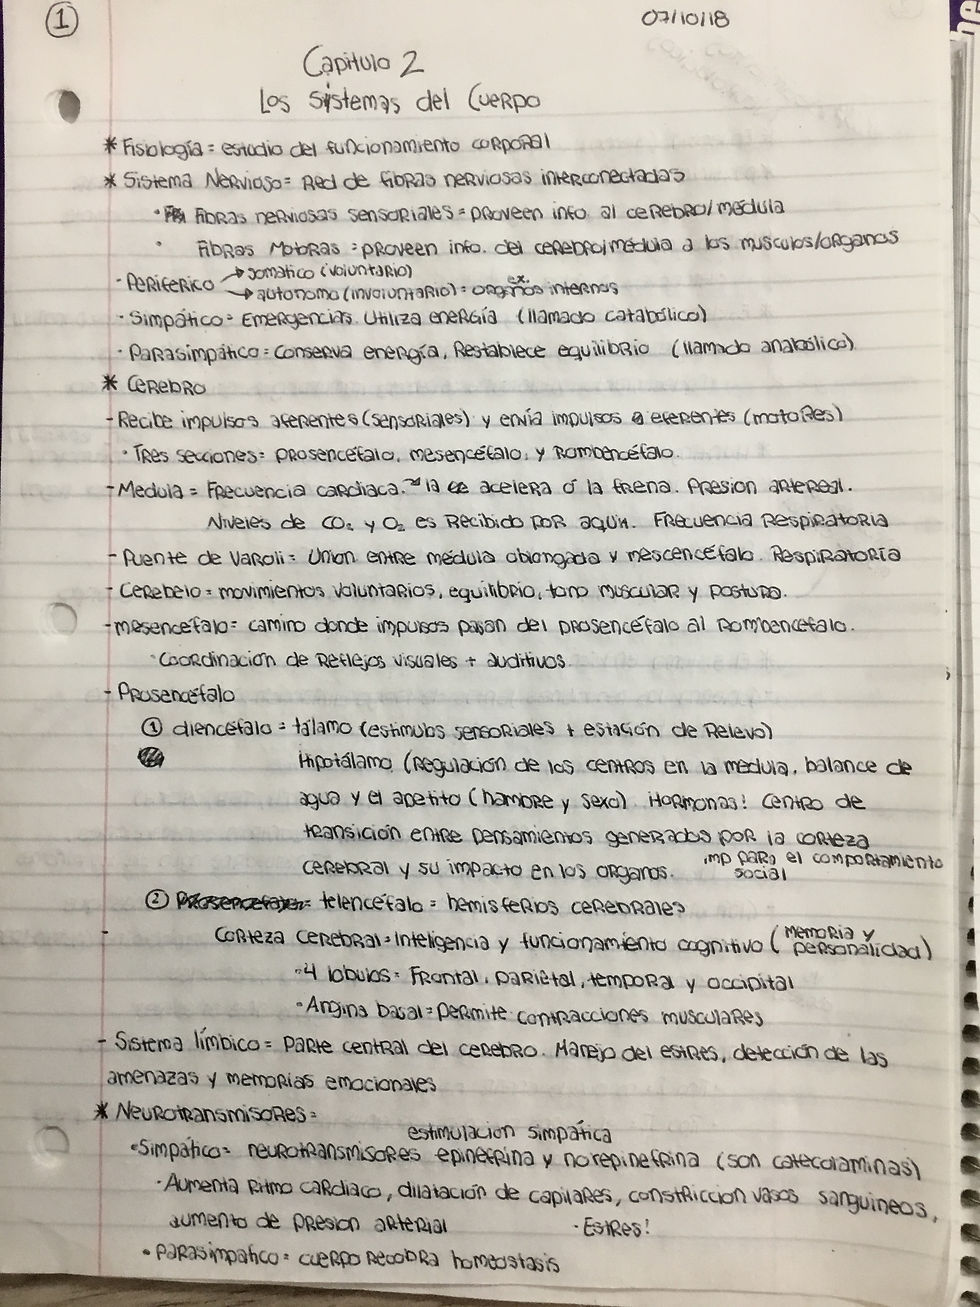 1
07/10/18
Capitulo 2
Los Sistemas del Cuerpo
* Fisiología = estudio del funcionamiento corporal
* Sistema Nervioso = Red de fibras nerviosas interconectadas
· Fibras nerviosas sensoriales = proveen info. al cerebro/medula
· Fibras Motoras = proveen info. del cerebro/médula a los musculos/organos
· Periferico → somatico (voluntario)
→ autonomo (involuntario) = ex. organos internos
· Simpático = Emergencias. Utiliza energía (llamado catabólico)
· Parasimpático = Conserva energía, Restablece equilibrio (llamado anabólico)
* Cerebro
- Recibe impulsos aferentes (sensoriales) y envía impulsos eferentes (motores)
· Tres secciones = prosencéfalo, mesencéfalo, y Rombencéfalo.
- Medula = Frecuencia cardiaca. la acelera o la frena. Presion artereal.
Niveles de CO₂ y O₂ es Recibido por aqui. Frecuencia Respiratoria
- Puente de Varoli = Union entre médula oblongada y mescencéfalo. Respiratoria
- Cerebelo = movimientos voluntarios, equilibrio, tono muscular y postura.
- mesencéfalo = camino donde impulsos pasan del prosencéfalo al Rombencéfalo.
· Coordinación de Reflejos visuales + auditivos
- Prosencéfalo
① diencéfalo = tálamo (estimulos sensoriales + estación de Relevo)
Hipotálamo (Regulación de los centros en la medula, balance de
agua y el apetito (hambre y sexo). Hormonas! Centro de
transición entre pensamientos generados por la corteza
cerebral y su impacto en los organos. imp para el comportamiento
social
② telencéfalo = hemisferios cerebrales
- Corteza cerebral = Inteligencia y funcionamiento cognitivo (Memoria y
personalidad)
· 4 lobulos = Frontal, parietal, temporal y occipital
· Angina basal = permite contracciones musculares
- Sistema límbico = parte central del cerebro. Manejo del estres, detección de las
amenazas y memorias emocionales
* Neurotransmisores =
estimulacion simpática
· Simpático = neurotransmisores epinefrina y norepinefrina (son catecolaminas)
· Aumenta Ritmo cardiaco, dilatación de capilares, constriccion vasos sanguineos,
aumento de presion arterial · Estres!
· Parasimpatico = cuerpo recobra homeostasis